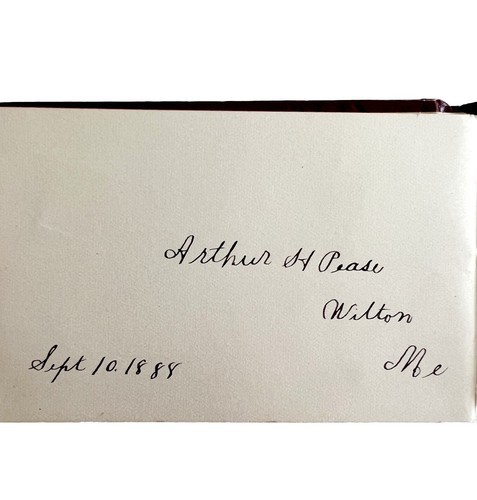 Arthur H Pease
Wilton
Sept 10. 1888 Me